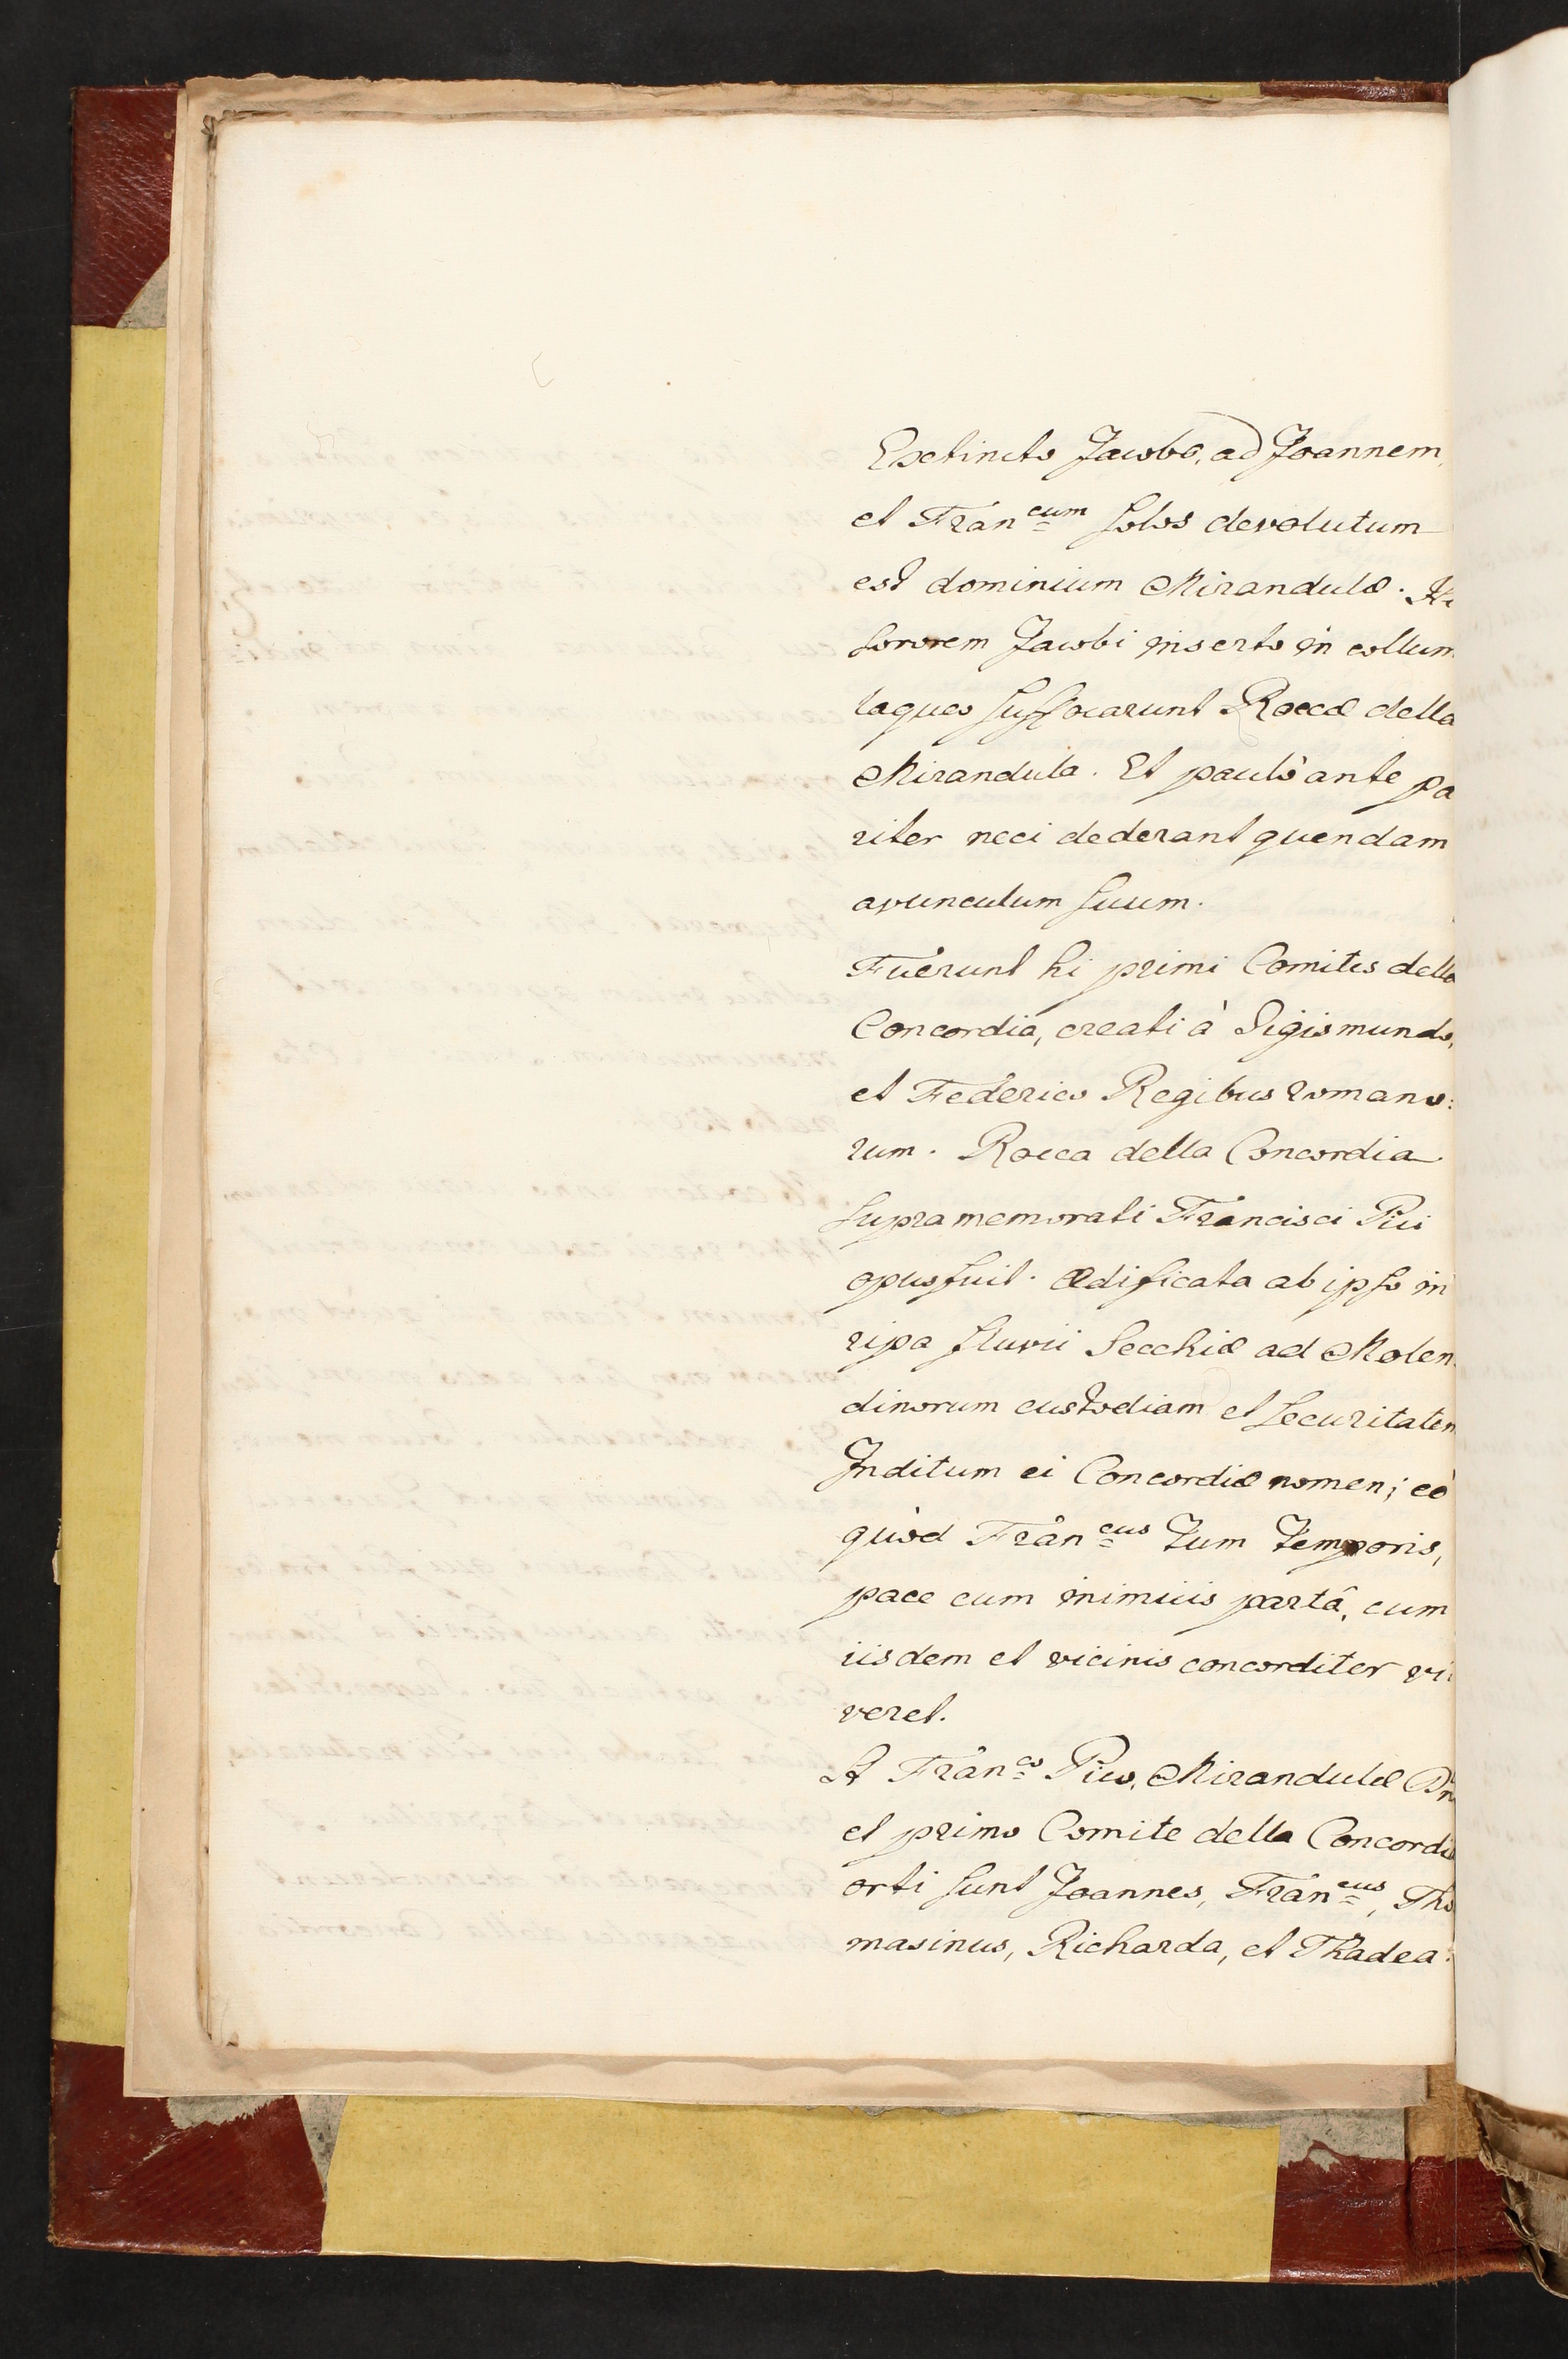 Exctincto Jacobo, ad Joannem,
et Fran^cum solos devolutum
est dominium Mirandulæ. Hi
sororem Jacobi inserto in collum
laqueo suffocarunt Roccæ della
Mirandula. Et paulò ante pa
riter neci dederant quendam
avunculum suum.
Fuerunt hi primi Comites della
Concordia, creati à Sigismundo,
et Federico Regibus Romano:
rum. Rocca della Concordia
supramemorati Francisci Pici
opus fuit. Ædificata ab ipso in
ripa fluvii Secchiæ ad Molen
dinorum custodiam et securitatem
Inditum ei Concordiæ nomen; eò
quòd Fran^cus tum temporis,
pace cum inimicis partâ, cum
iisdem et vicinis concorditer vi
veret.
A Fran^co Pico, Mirandulæ Dn
et primo Comite della Concordia
orti sunt Joannes, Fran^cus, Tho
masinus, Richarda, et Thadea: